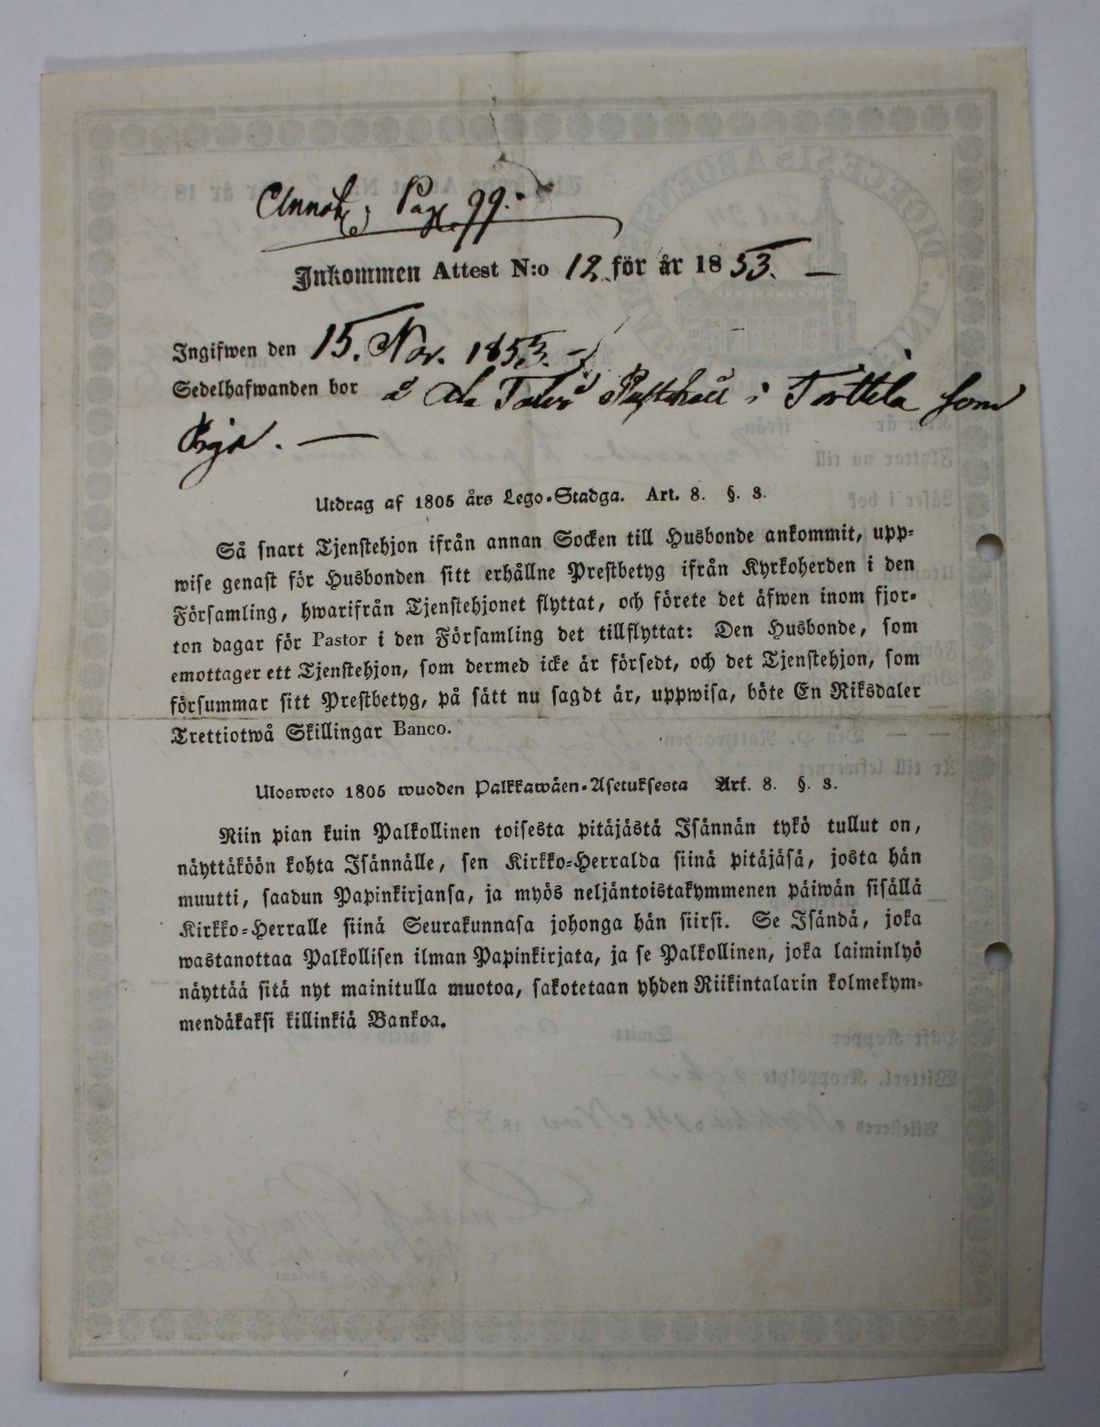 Annot, Pag. 99.
Inkommen Attest N:o 12 för år 1853.
Ingifwen den 15. Nov. 1853.
Sedelhafwanden bor å i Torttila som
Piga.
Utdrag af 1805 års Lego-Stadga. Art. 8. §. 3.
Så snart Tjenstehjon ifrån annan Socken till Husbonde ankommit, upp-
wise genast för Husbonden sitt erhållne Prestbetyg ifrån Kyrkoherden i den
Församling, hwarifrån Tjenstehjonet flyttat, och förete det äfwen inom fjor-
ton dagar för Pastor i den Församling det tillflyttat: Den Husbonde, som
emottager ett Tjenstehjon, som dermed icke är försedt, och det Tjenstehjon, som
försummar sitt Prestbetyg, på sätt nu sagdt är, uppwisa, böte En Riksdaler
Trettiotwå Skillingar Banco.
Ulosweto 1805 wuoden Palkkawäen-Asetuksesta Art. 8. §. 3.
Niin pian kuin Palkollinen toisesta pitäjästä Isännän tykö tullut on,
näyttäköön kohta Isännälle, sen Kirkko-Herralda siinä pitäjäsä, josta hän
muutti, saadun Papinkirjansa, ja myös neljäntoistakymmenen päiwän sisällä
Kirkko-Herralle siinä Seurakunnasa johonga hän siirsi. Se Isändä, joka
wastanottaa Palkollisen ilman Papinkirjata, ja se Palkollinen, joka laiminlyö
näyttää sitä nyt mainitulla muotoa, sakotetaan yhden Riikintalarin kolmekym-
mendäkaksi killinkiä Bankoa.